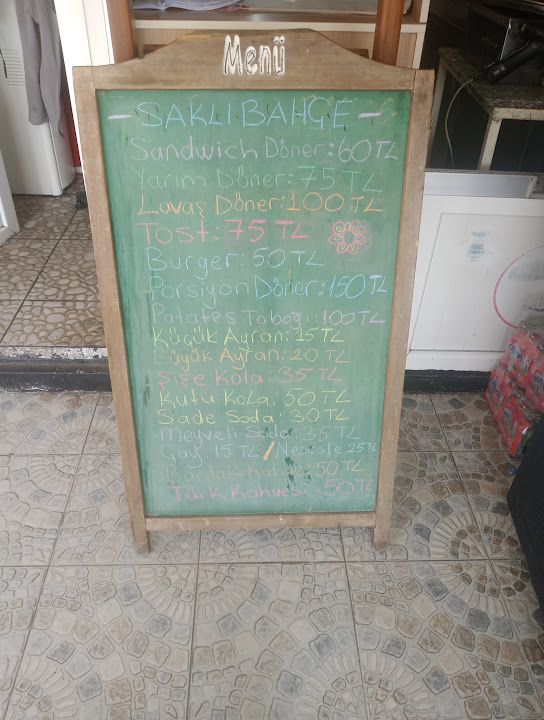 Menü
- SAKLIBAHÇE -
Sandwich Döner: 60 TL
Yarım Döner: 75 TL
Lavaş Döner: 100 TL
Tost: 75 TL
Burger: 50 TL
Porsiyon Döner: 150 TL
Patates Tabağı: 100 TL
Küçük Ayran: 15 TL
Büyük Ayran: 20 TL
Şişe Kola: 35 TL
Kutu Kola: 50 TL
Sade Soda: 30 TL
Meyveli Soda: 35 TL
Çay: 15 TL / Nescafe 25 TL
Bardak Kahve: 50 TL
Türk Kahvesi: 50 TL